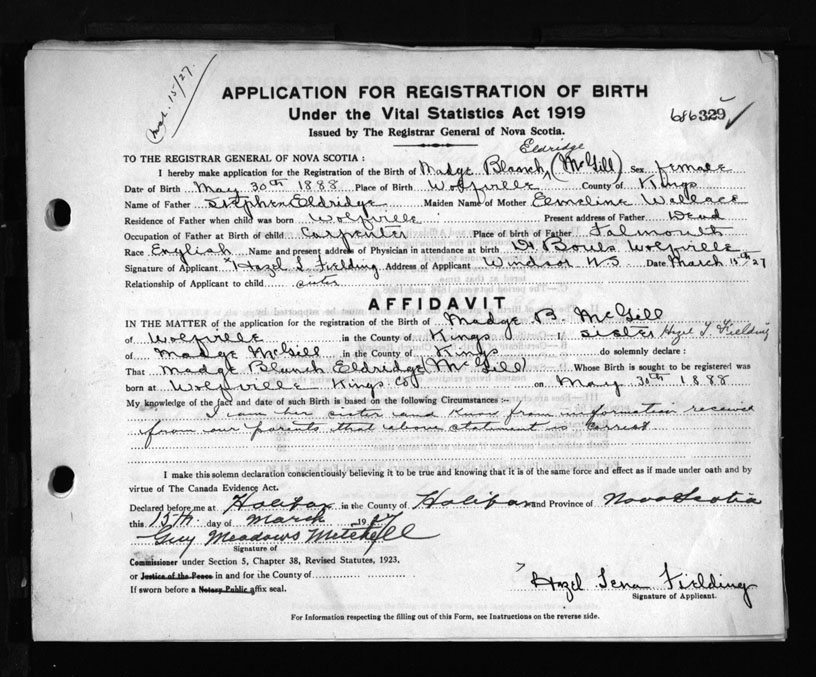 Mar. 15/27.
APPLICATION FOR REGISTRATION OF BIRTH
Under the Vital Statistics Act 1919
686329
Issued by The Registrar General of Nova Scotia.
Eldridge
TO THE REGISTRAR GENERAL OF NOVA SCOTIA:
I hereby make application for the Registration of the Birth of Madge Blanch (McGill) Sex female
Date of Birth May 30th 1888 Place of Birth Wolfville County of Kings
Name of Father Stephen Eldridge Maiden Name of Mother Emeline Wallace
Residence of Father when child was born Wolfville Present address of Father Dead
Occupation of Father at Birth of child Carpenter Place of birth of Father Falmouth
Race English Name and present address of Physician in attendance at birth Dr Bowls Wolfville
Signature of Applicant x Hazel L Fielding Address of Applicant Windsor N.S Date March 15th 27
Relationship of Applicant to child sister
AFFIDAVIT
IN THE MATTER of the application for the registration of the Birth of Madge B. McGill
of Wolfville in the County of Kings I, sister Hazel L Fielding
of Madge McGill in the County of Kings do solemnly declare:
That Madge Blanch Eldridge (McGill) Whose Birth is sought to be registered was
born at Wolfville - Kings Co on May 30th 1888
My knowledge of the fact and date of such Birth is based on the following Circumstances:-
I am her sister and know from information received
from our parents that above statement is correct
I make this solemn declaration conscientiously believing it to be true and knowing that it is of the same force and effect as if made under oath and by
virtue of The Canada Evidence Act.
Declared before me at Halifax in the County of Halifax and Province of Nova Scotia
this 15th day of March 1927
Guy Meadows Mitchell
Signature of
Commissioner under Section 5, Chapter 38, Revised Statutes, 1923.
or Justice of the Peace in and for the County of
If sworn before a Notary Public affix seal.
Hazel Lena Fielding
Signature of Applicant.
For Information respecting the filling out of this Form, see Instructions on the reverse side.